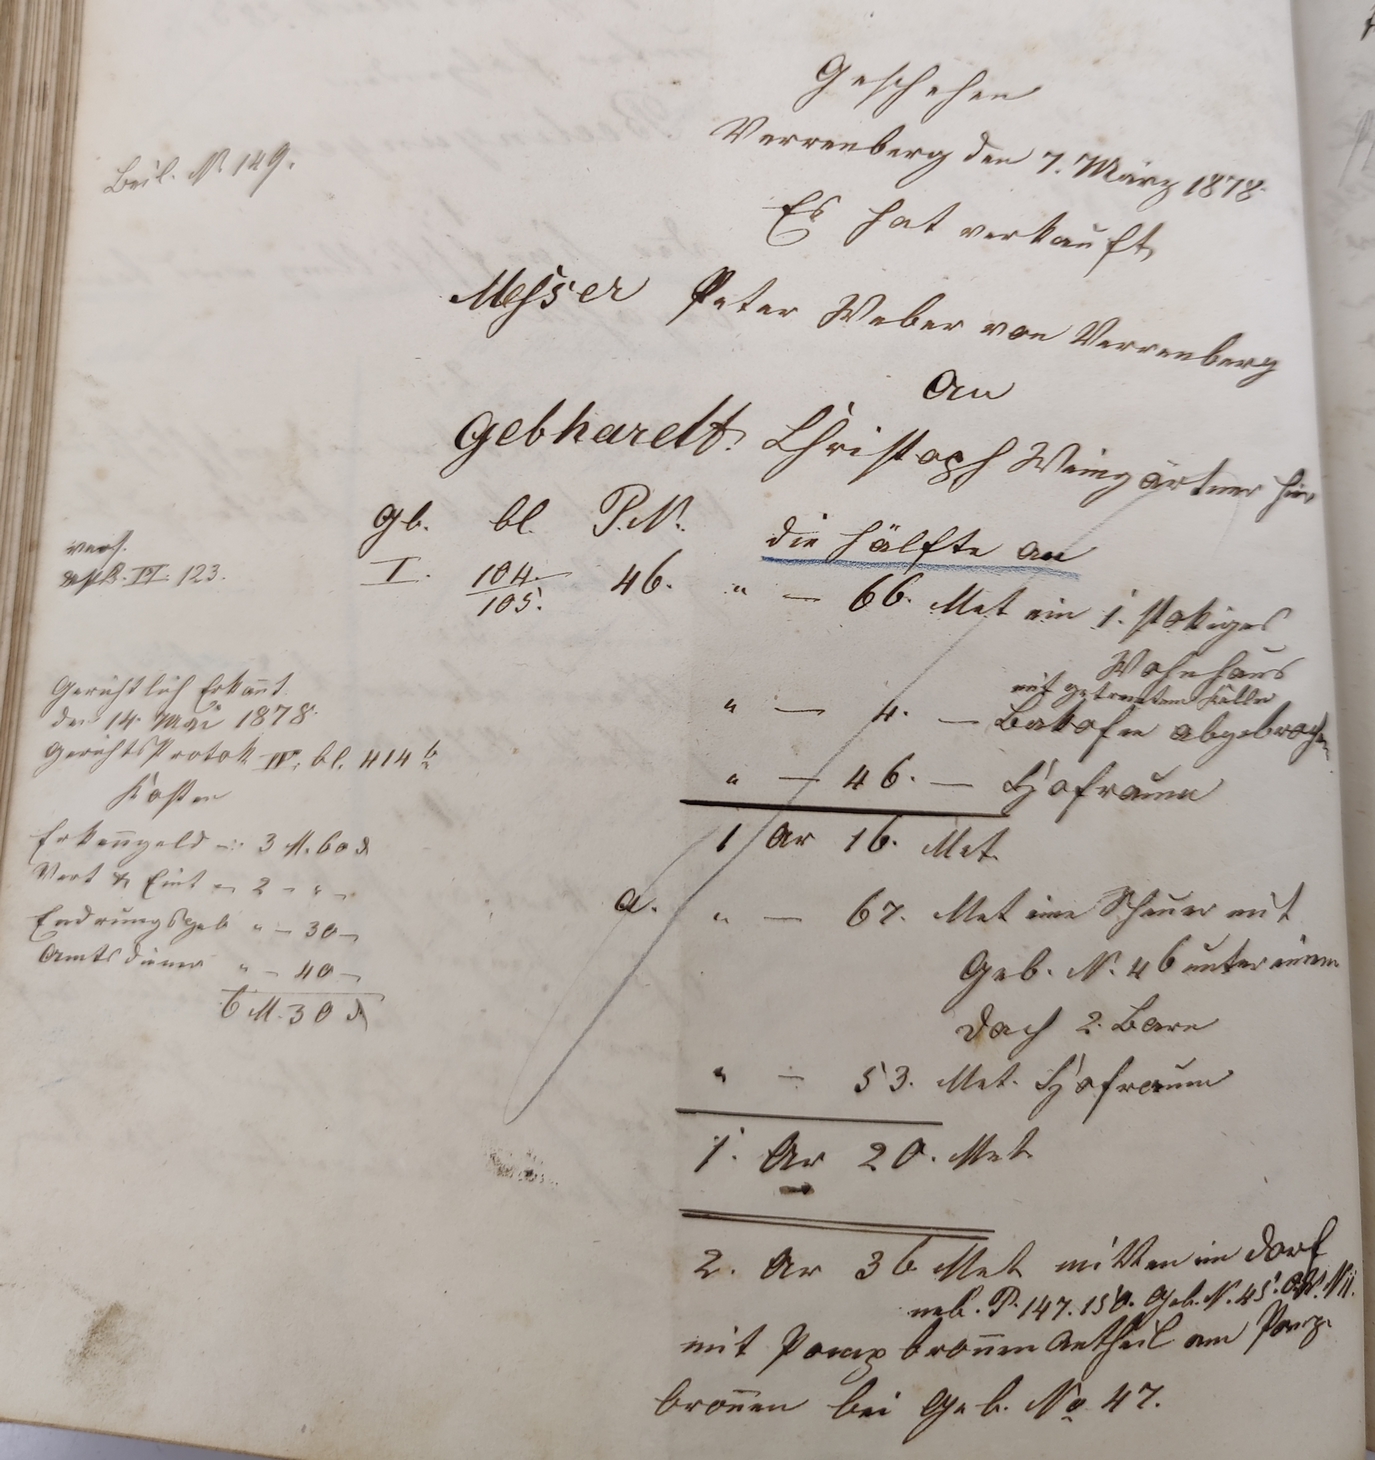 Geschehen
Verrenberg den 7. März 1878.
Beil. N. 149.
Es hat verkauft
Messer Peter Weber von Verrenberg
an
Gebhardt. Christoph Weingärtner hier
Gb. bl. P.N.
die Hälfte an
I. 104. 46. " — 66. Met ein 1. stokiges
105.
Wohnhaus
mit getrentem Keller
" — 4. — Bakofen abgebrochen
" — 46. — Hofraum
1 Ar 16. Met.
a. " — 67. Met eine Scheuer mit
Geb. N. 46 unter einem
Dach 2. Barn
" — 53. Met. Hofraum
1. Ar 20. Met.
2. Ar 36 Met mitten im Dorf
neb. P. 147. 150. Geb. N. 45.
mit Pomp bronnen Antheil am Pomp
bronnen bei Geb. No 47.
III. 123.
Gerichtlich Erkannt
den 14. Mai 1878.
Gerichts Protok IV. bl. 414 b
Kosten
Erkenngeld — 3 M. 60 d
2 - " -
" - 30 -
Amtsdiener " - 40 -
6 M. 30 d